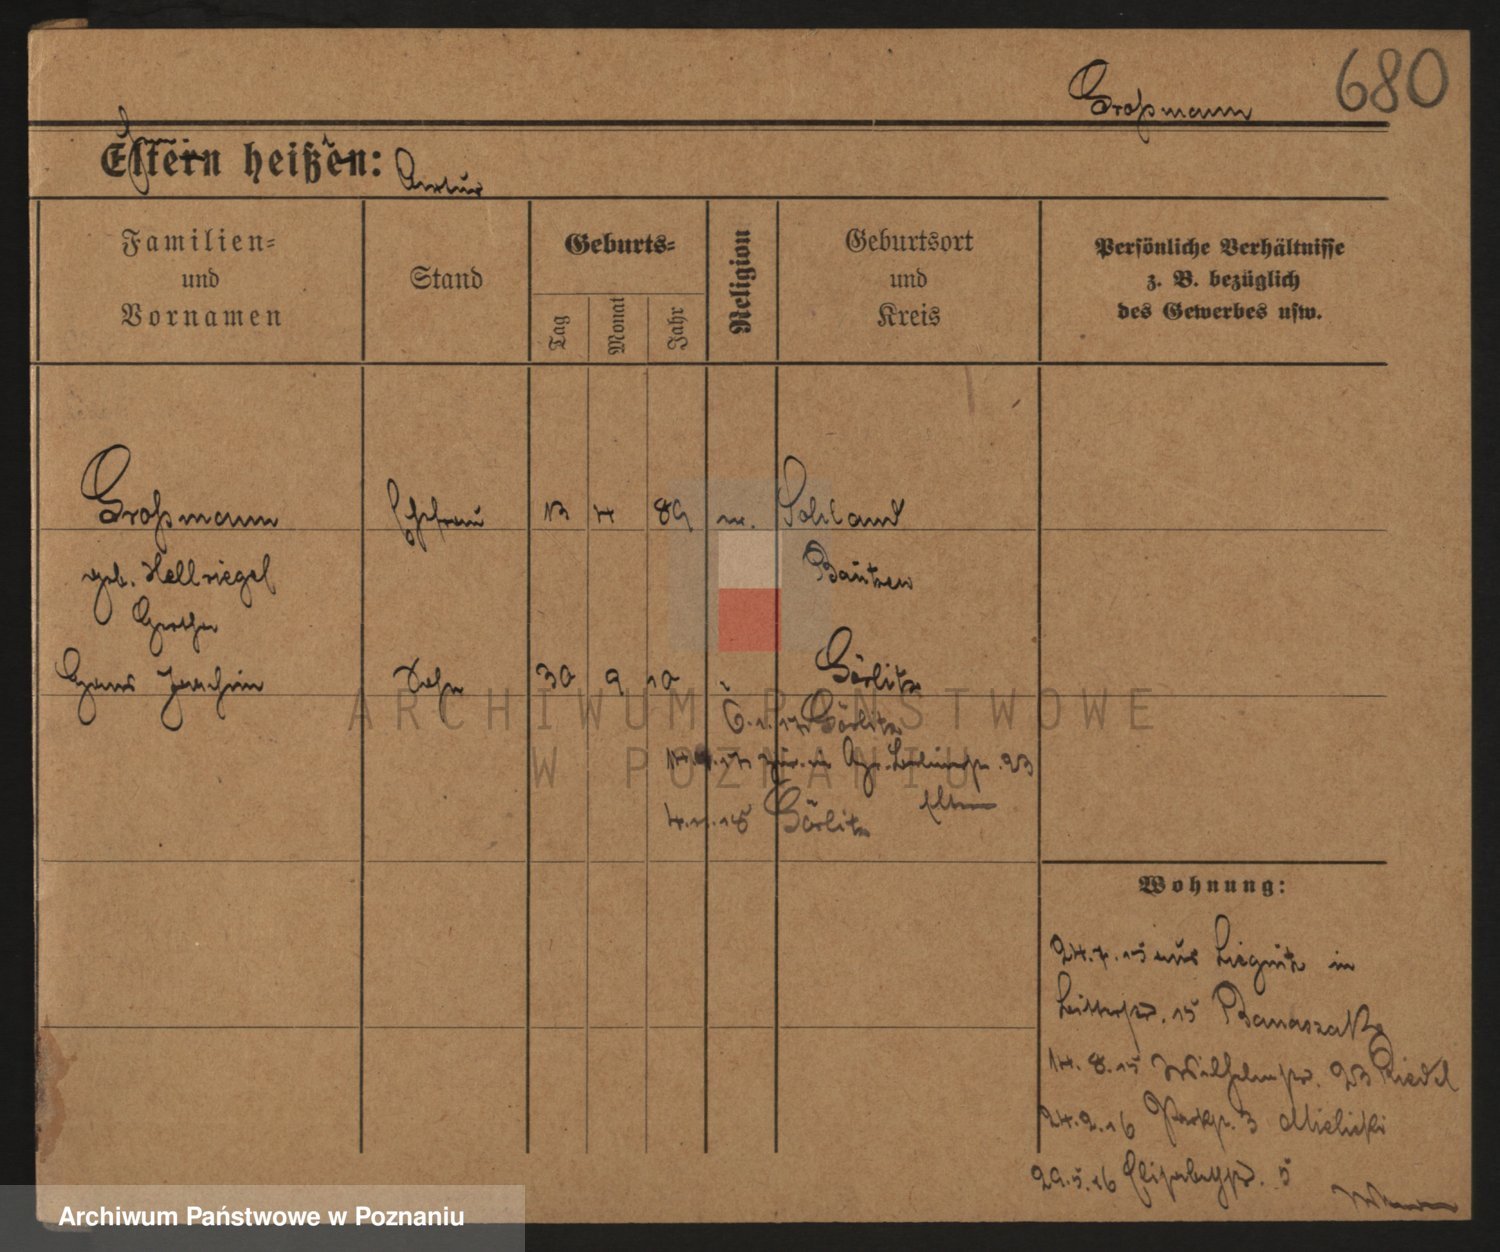 Großmann 680
Eltern heißen: Artur
Familien=
und
Vornamen
Stand
Geburts=
Tag
Monat
Jahr
Religion
Geburtsort
und
Kreis
Persönliche Verhältnisse
z. B. bezüglich
des Gewerbes usw.
Großmann Ehefrau 13 4 89 Sohland
geb. Hellriegel Bautzen
Hans Joachim Sohn 30 9 10 Görlitz
Görlitz
23
Eltern
Görlitz
Wohnung:
24.7.15 aus Liegnitz in
15 Banaszak
14.8.15 Wilhelmstr. 23 Riedel
24.2.16 Parkstr. 3 Mielicki
29.5.16 Elisabethstr. 5
ARCHIWUM PAŃSTWOWE
W POZNANIU
Archiwum Państwowe w Poznaniu